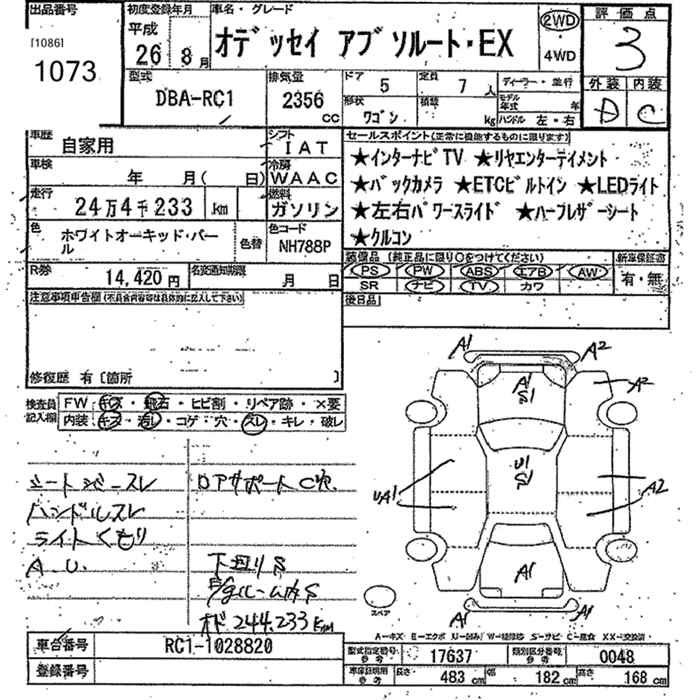 出品番号
[1086]
1073
初度登録年月
平成
26 8月
車名・グレード
オデッセイ アブソルート・EX
2WD
4WD
評価点
3
外装 内装
C
型式
DBA-RC1
排気量
2356
cc
ドア 5
定員 7人
形状 ワゴン
積載 kg
ディーラー・並行
モデル年式 年
ハンドル 左・右
車歴 自家用
シフト IAT
車検 年 月( 日)
冷房 WAAC
走行 24万4千233 km
燃料 ガソリン
色 ホワイトオーキッド・パール
色替
色コード NH788P
R券 14,420円
名変通知期限 月 日
セールスポイント(正常に機能するものに限ります)
★インターナビTV ★リヤエンターテイメント
★バックカメラ ★ETCビルトイン ★LEDライト
★左右パワースライド ★ハーフレザーシート
★クルコン
装備品 (純正品に限り○をつけてください)
新車保証書
有・無
PS PW ABS エアB AW
SR ナビ TV カワ
後日品
注意事項申告欄(不具合内容等は具体的に記入して下さい)
修復歴 有 〔箇所 〕
検査員記入欄
FW キズ・飛石・ヒビ割・リペア跡・×要
内装 キズ・汚レ・コゲ・穴・スレ・キレ・破レ
シートシワ・スレ
ハンドルスレ
ライトくもり
A.U.
ロアサポートC穴
下回りS
E/gルーム内S
オド244.233km
A1 A2
A1
S1
A2
U1
S1
UA1
A2
A1
A1 A1
スペア
A-キズ E-エクボ U-凹み W-補修跡 S-サビ C-腐食 XX-交換済
車台番号 RC1-1028820
登録番号
型式指定番号 参考 17637
類別区分番号 参考 0048
車庫証明用 参考 長さ 483 cm 幅 182 cm 高さ 168 cm